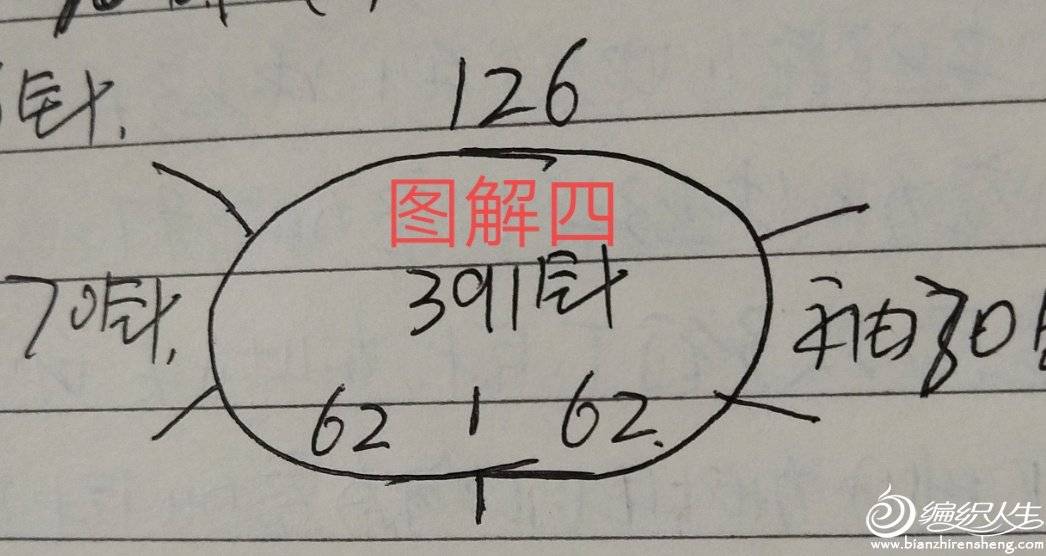 针.
126
图解四
391针
70针.
袖70
62 1 62.
编织人生
www.bianzhirensheng.com